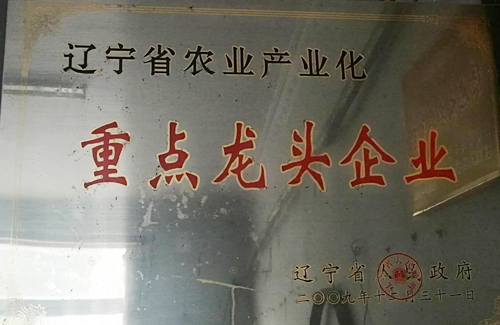 辽宁省农业产业化
重点龙头企业
辽宁省人民政府
二〇〇九年十二月三十一日